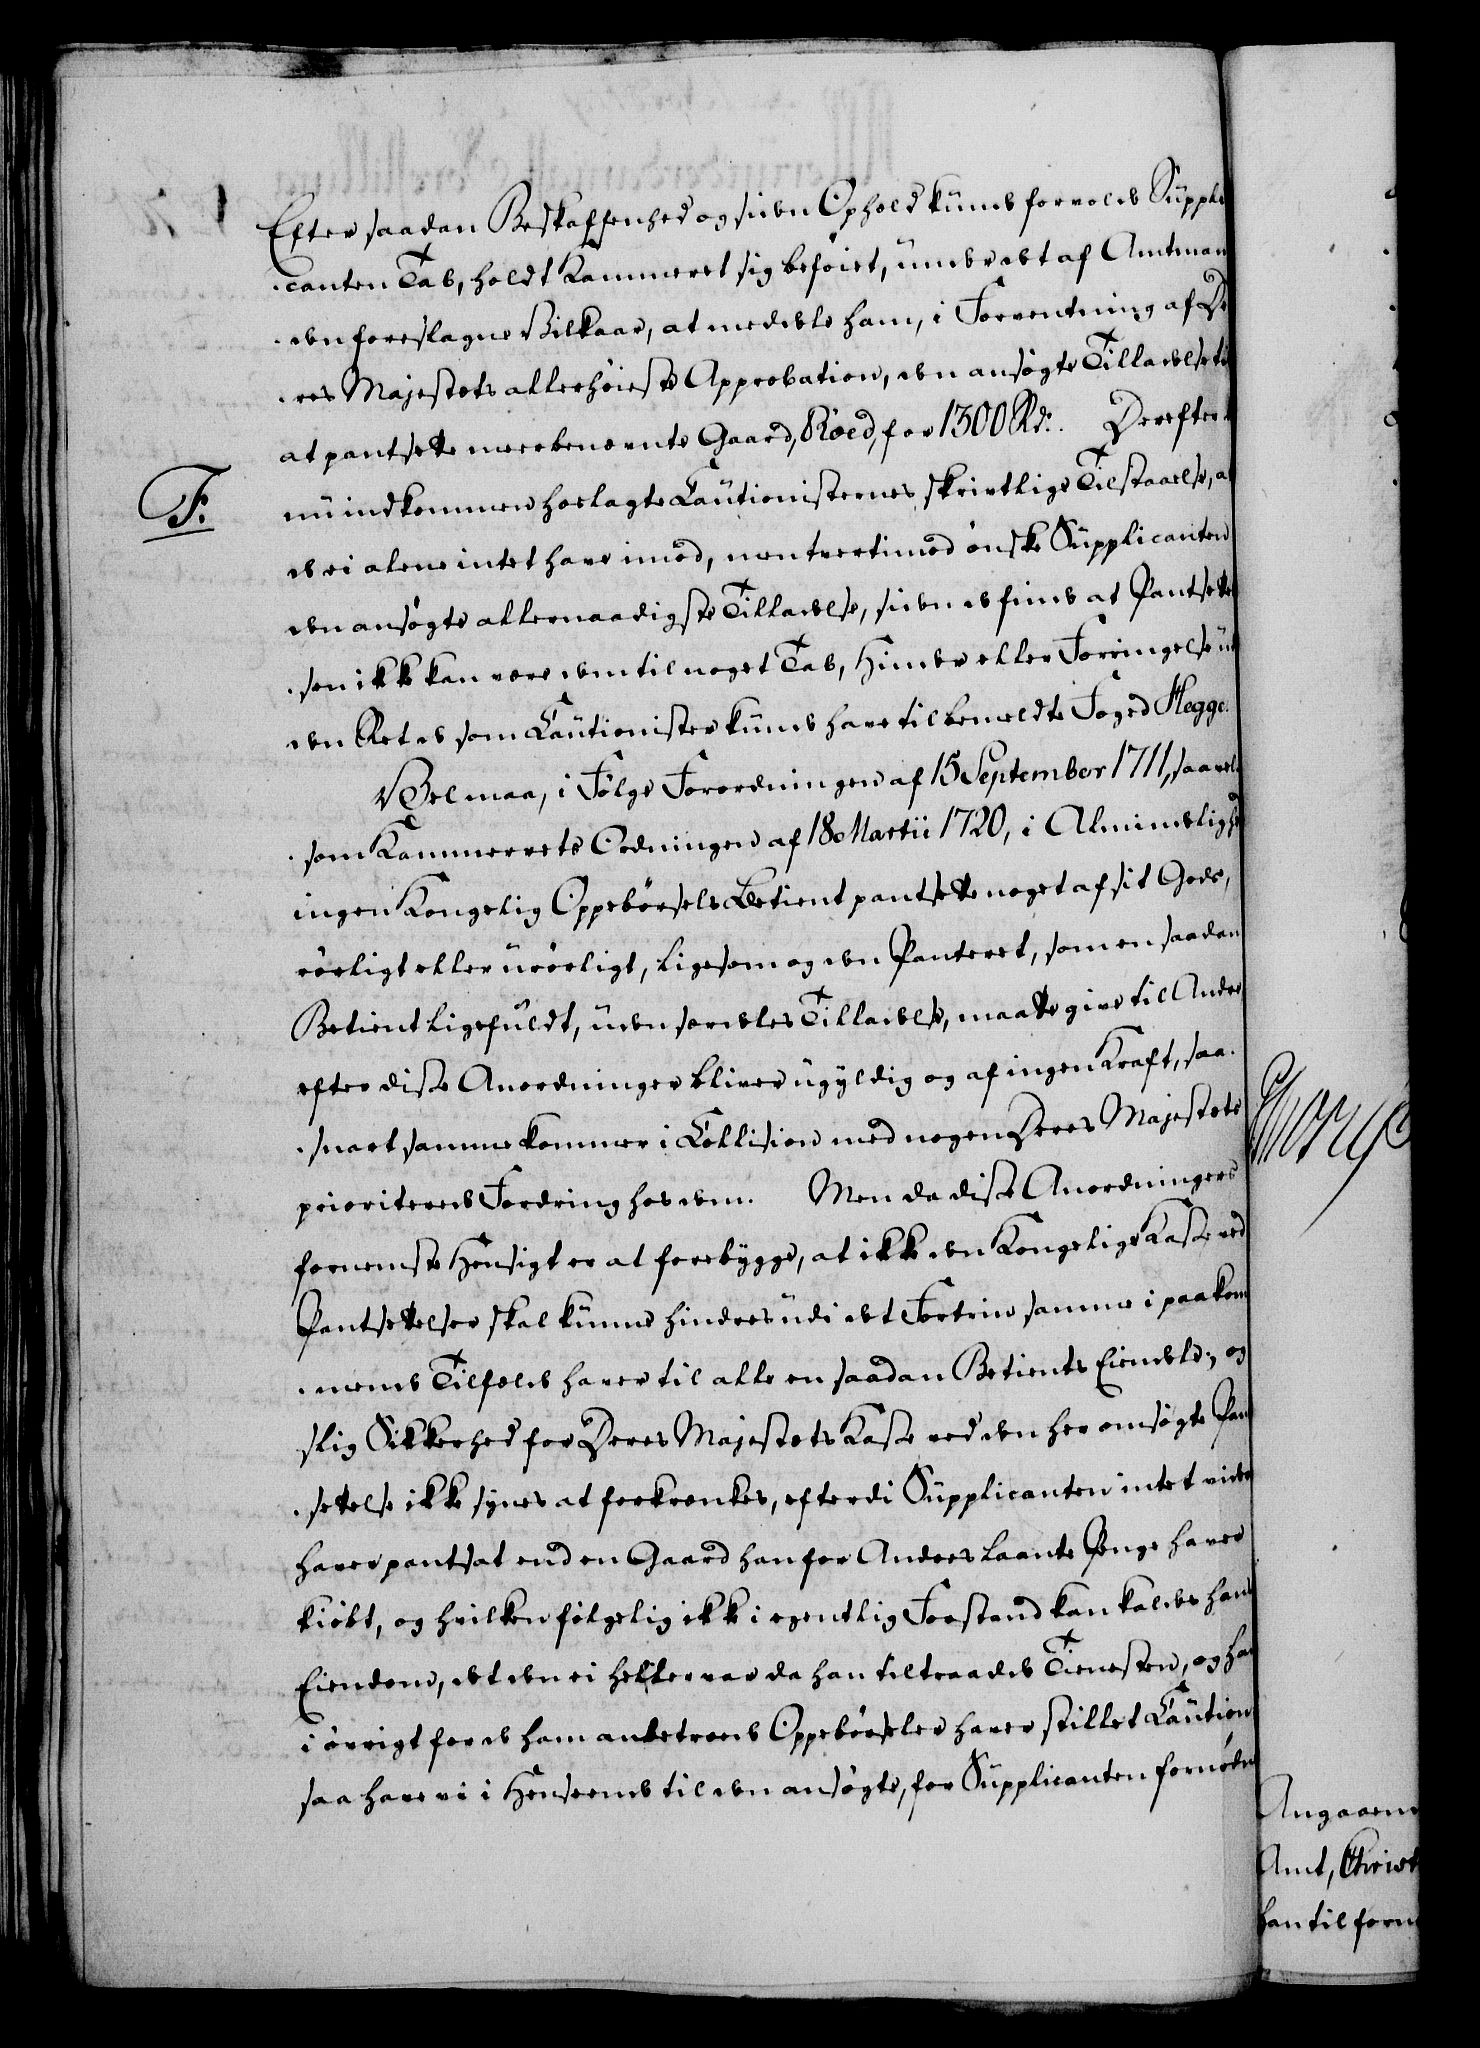 Efter saadan Beskaffenhed og siden Ophold kunde forvolde Suppli
canten Tab, holdt Kammeret sig beföiet, under det af Amtman
den foreslagne Vilkaar, at meddele ham, i Forventning af De
res Majestæts allerhöieste Approbation, den ansögte Tilladelse til
at pantsette meerbenævnte Gaard, Röed, for 1300 Rd. Derefter
F.
nu indkommen hoslagte Cautionisternes skrivtlige Tilstaaelse, at
de ei alene intet have imod, men tvertimod önske Supplicanten
den ansögte allernaadigste Tilladelse, siden de finde at Pantsettel
sen ikke kan være dem til noget Tab, Hinder eller Forringelse ud
den Ret de som Cautionister kunde have til bemeldte Foged Flegge.
Vel maa, i Fölge Forordningen af 15 September 1711, saavel
som Kammerrets Ordningen af 18 Martii 1720, i Almindelighe
ingen Kongelig Oppebörsels Betient pantsette noget af sit Gods,
rörligt eller urörligt, ligesom og den Panteret, som en saadan
Betient ligefuldt, uden særdeles Tilladelse, maatte give til Andre
efter disse Anordninger bliver ugyldig og af ingen Kraft, saa
snart samme kommer i Collision med nogen Deres Majestæts
prioriterede Fordring hos dem. Men da disse Anordningers
fornemste Hensigt er at forebygge, at ikke den Kongelige Kasse ved
Pantsettelser skal kunne hindres udi det Fortrin samme i paakom
mende Tilfælde haver til alle en saadan Betients Eiendele; og
slig Sikkerhed for Deres Majestæts Kasse ved den her omsögte Pan
settelse ikke synes at forkrænkes, efterdi Supplicanten intet videre
haver pantsat end en Gaard han for Andres laante Penge haver
kiöbt, og hvilken fölgelig ikke i egentlig Forstand kan kaldes hans
Eiendom, det den ei heller var da han tiltraadde Tienesten, og han
i övrigt for de ham anbetroede Oppebörseler haver stillet Caution
saa have vi i Henseende til den ansögte, for Supplicanten fornöden
Angaaend
Amt, Christ
han til forn